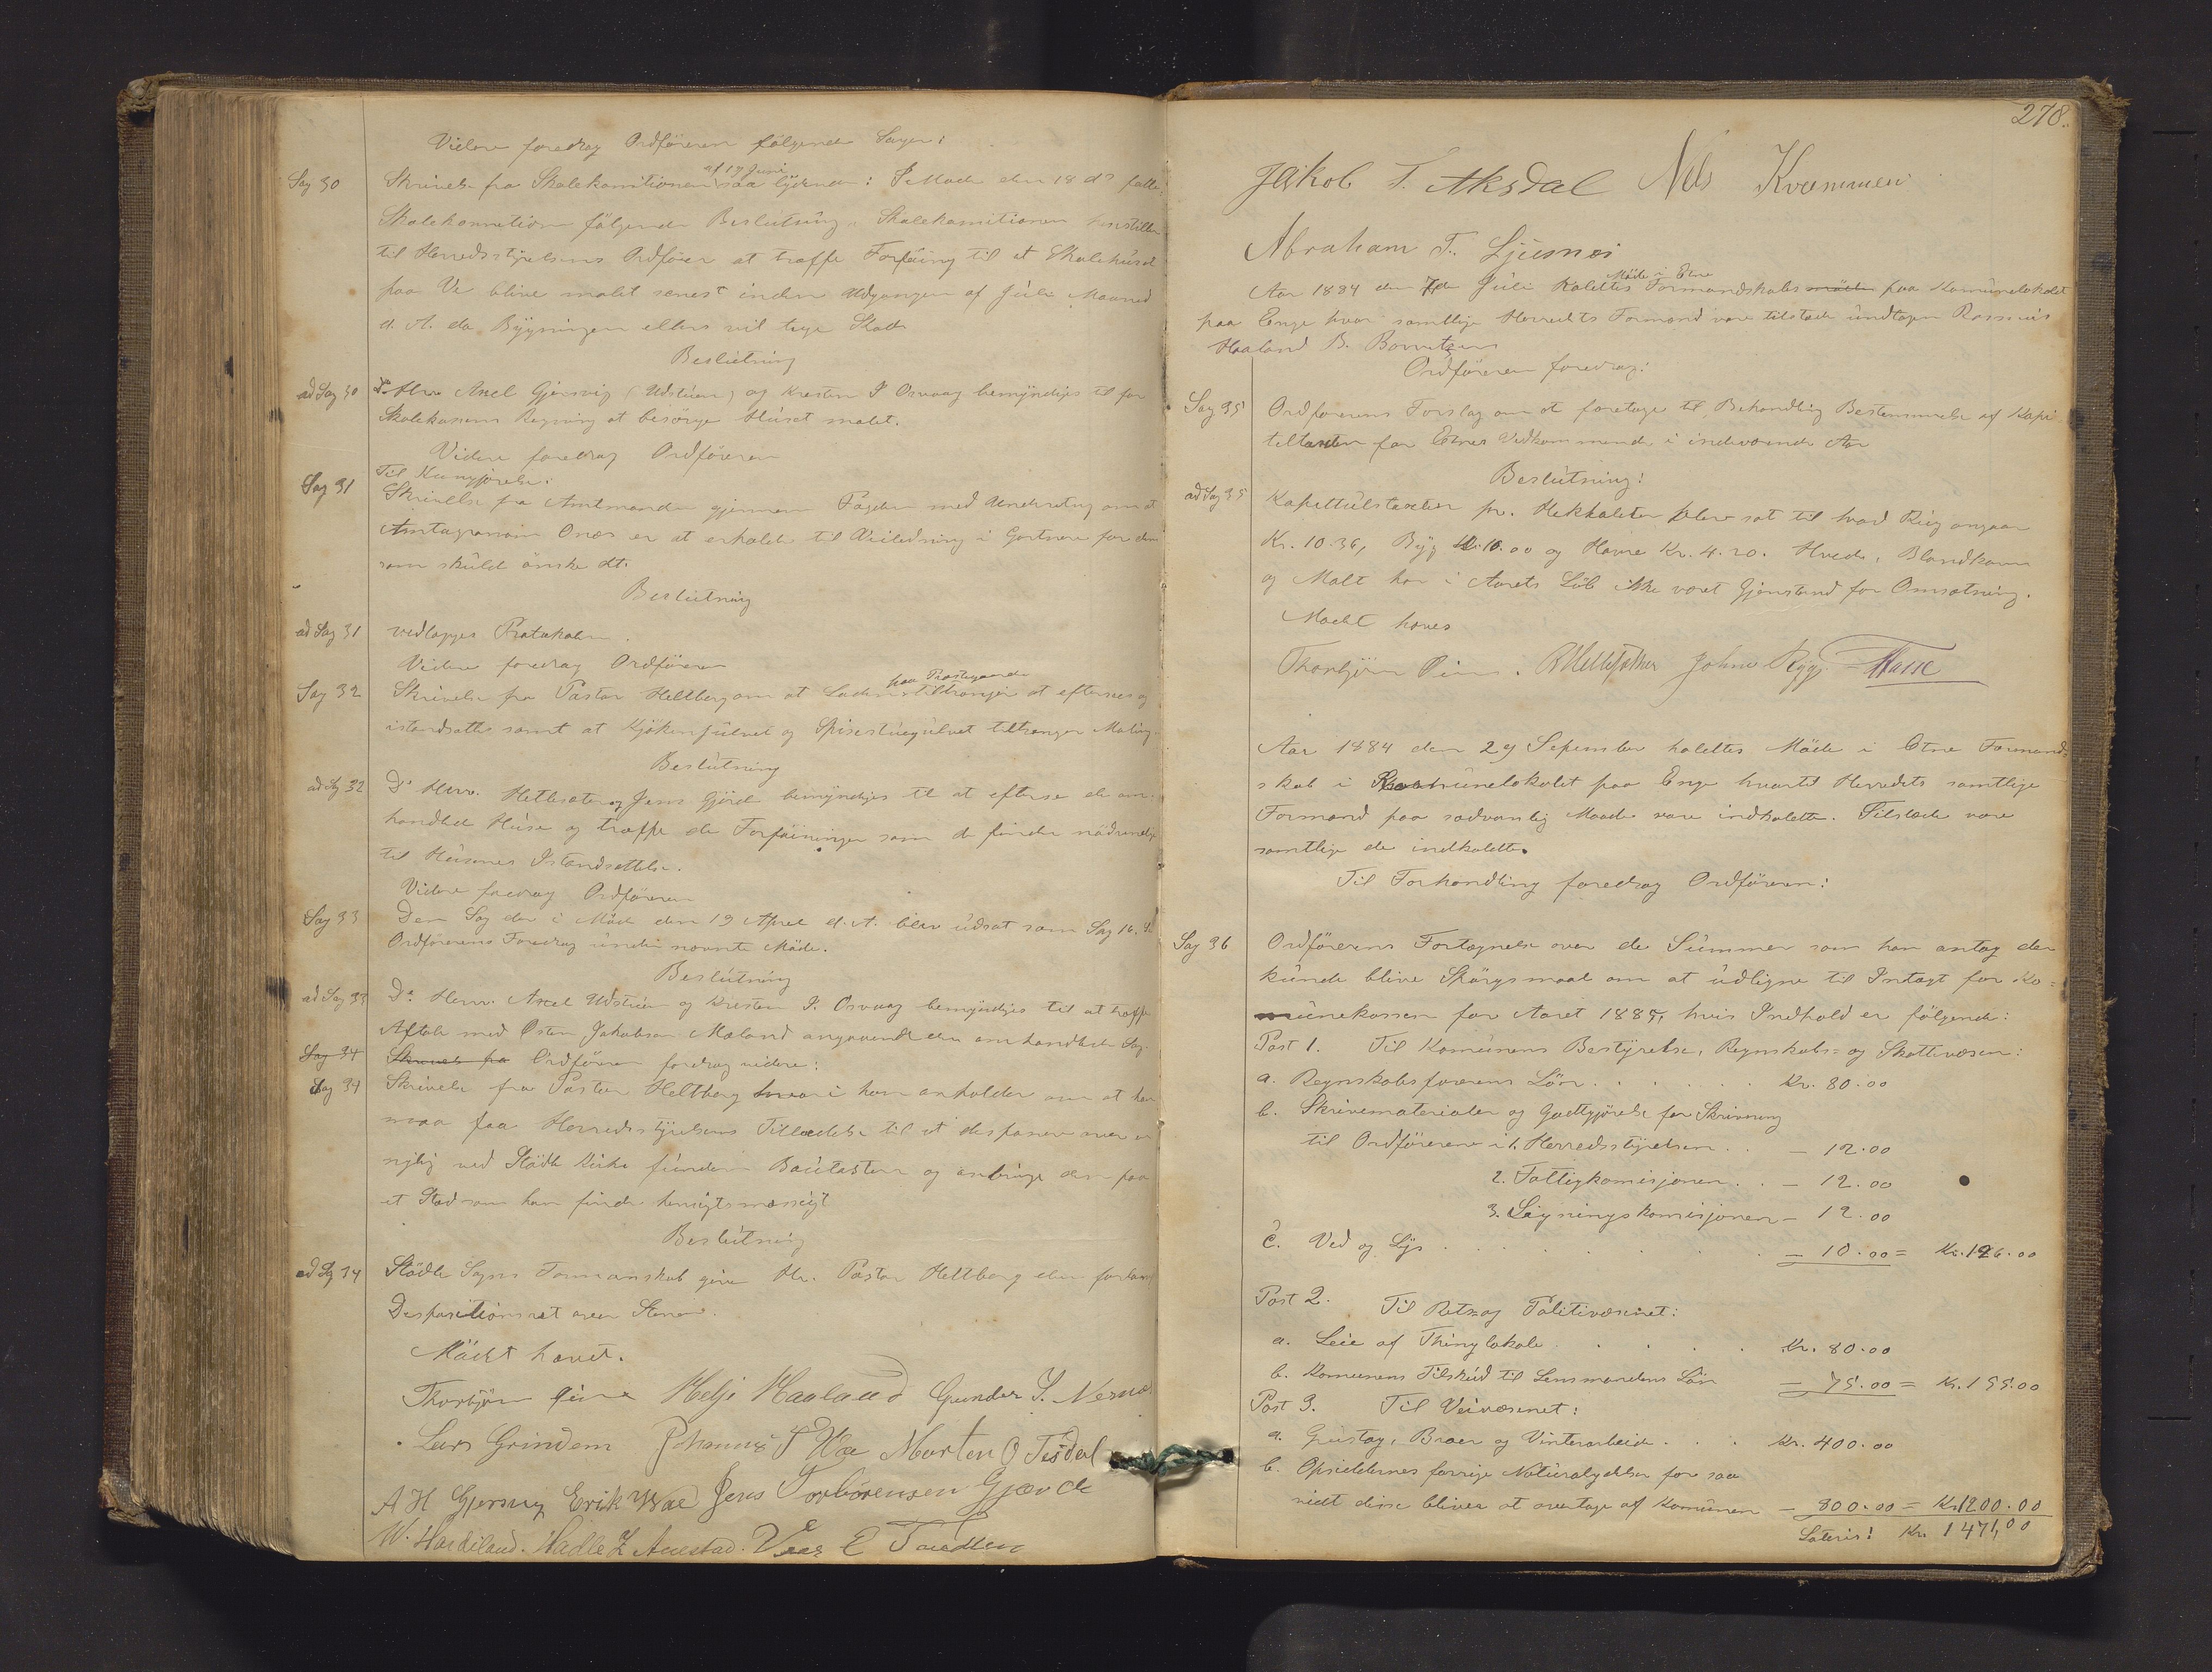 Videre foredrog Ordföreren følgende Sager:
Sag 30 Skrivelse fra Skolekomitionen af 19 Juni saa lydende: I Möde den 18 ds fatte
Skolekomitionen følgende Beslutning. Skolekomitionen henstiller
til Herredsstyrelsens Ordförer at træffe Forföining til at Skolehuset
paa Ve blive malet senest inden Udgangen af Juli Maaned
d. A. da Bygningen ellers vil tage Skade
Beslutning
ad Sag 30 Dr Hrr. Axel Gjersvig (Udstuen) og Kristen I Osvaag bemyndiges til for
Skolekassens Regning at besörge Huset malet.
Videre foredrog Ordföreren
Til Kungjörelse:
Sag 31 Skrivelse fra Amtmanden gjennem Fogden med Underretning om at
Amtagronom Onæs er at erholde til Veiledning i Gartneri for dem
som skulde önske det.
Beslutning
ad Sag 31 vedlægges Protokolen.
Videre foredrog Ordföreren
Sag 32 Skrivelse fra Pastor Heltberg om at Laden paa Præstegaarden tiltrænger at efterses og
istandsættes samt at Kjökengulvet og Spisestuegulvet tiltrænger Maling.
Beslutning
ad Sag 32 Dr Herr. Hetlesæter og Jens Gjærde bemyndiges til at efterse de om-
handlede Huse og træffe de Forföininger som de finder nödvendige
til Husenes Istandsættelse.
Videre foredrog Ordföreren
Sag 33 Den Sag der i Möde den 19 April d. A. blev udsat som Sag 16. Se
Ordförerens Foredrag under nævnte Möde.
Beslutning
ad Sag 33 Dr. Herr. Axel Udstuen og Kristen I. Osvaag bemyndiges til at træffe
Aftale med Østen Jakobsen Mæland angaaende den omhandlede Sag.
Sag 34 Skrivelse fra Ordföreren foredrog videre:
Sag 34 Skrivelse fra Pastor Heltberg hvori han anholder om at han
maa faa Herredsstyrelsens Tilladelse til at disponere over en
nylig ved Stödle Kirke funden Bautasten og anbringe den paa
et Sted som han finder hensigtsmæssigt
Beslutning
ad Sag 34 Stödle Sogns Formanskab giver Hr. Pastor Heltberg den forlangte
Dispositionsret over Stenen.
Mödet hævet.
Thorbjörn Helje Haaland Gunder S. Nernæs
Lars Grindem Johannes T Væ Morten O Tesdal
A H Gjersvig Erik Wae Jens Torbörensen Gjærde
W. Handeland. Hadle Auestad. E
278.
Jakob T. Aksdal Nels Kvammen
Abraham T. Ljusnæs
Aar 1884 den 7de Juli holdtes Möde i Etne Formandskabs möde paa Komunelokalet
paa Enge hvor samtlige Herredets Formænd vare tilstede undtagen Rasmus
Haaland B.
Ordföreren foredrog:
Sag 35 Ordførerens Forslag om at foretage til Behandling Bestemmelse af Kapi
teltaxten for Etnes Vedkommende i indeværende Aar
Beslutning!
ad Sag 35 Kapittulstaxten pr. Hektoliter blev sat til hvad Rug angaar
Kr. 10.36, Byg Kr. 10.00 og Havre Kr. 4.20. Hvede, Blandkorn
og Malt har i Aarets Löb ikke været Gjenstand for Omsætning.
Mödet hæves
Thorbjörn B Hetlesæther Johne Rygg
Aar 1884 den 29 Sepember holdtes Möde i Etne Formand-
skab i Komunelokalet paa Enge hvortil Herredets samtlige
Formænd paa sædvanlig Maade vare indkaldte. Tilstede vare
samtlige de indkaldte.
Til Forhandling foredrog Ordföreren:
Sag 36 Ordförerens Fortegnelse over de Summer som han antog der
kunde blive Spörgsmaal om at udligne til Indtægt for Ko=
munekassen for Aaret 1885, hvis Indhold er fölgende:
Post 1. Til Komunens Bestyrelse, Regnskabs= og Skattevæsen:
a. Regnskabsførerens Lön . . . . Kr. 80.00
b. Skrivematerialer og Godtgjörelse for Skrivning
til Ordföreren i 1. Herredsstyrelsen . . — 12.00
2. Fattigkomisjonen . . — 12.00
3. Ligningskomisjonen — 12.00
c. Ved og Lys . . . . . — 10.00 = Kr. 126.00
Post 2. Til Rets= og Politivæsenet:
a. Leie af Thinglokale . . . . Kr. 80.00
b. Komunens Tilskud til Lensmandens Lön — 75.00 = Kr. 155.00
Post 3. Til Veivæsenet:
a. Grustag, Broer og Vinterarbeide . . . Kr. 400.00
b. Opsiddernes forrige Naturalydelser for saa
vidt disse bliver at overtage af Komunen — 800.00 = Kr 1200.00
Lateris! Kr. 1471,00